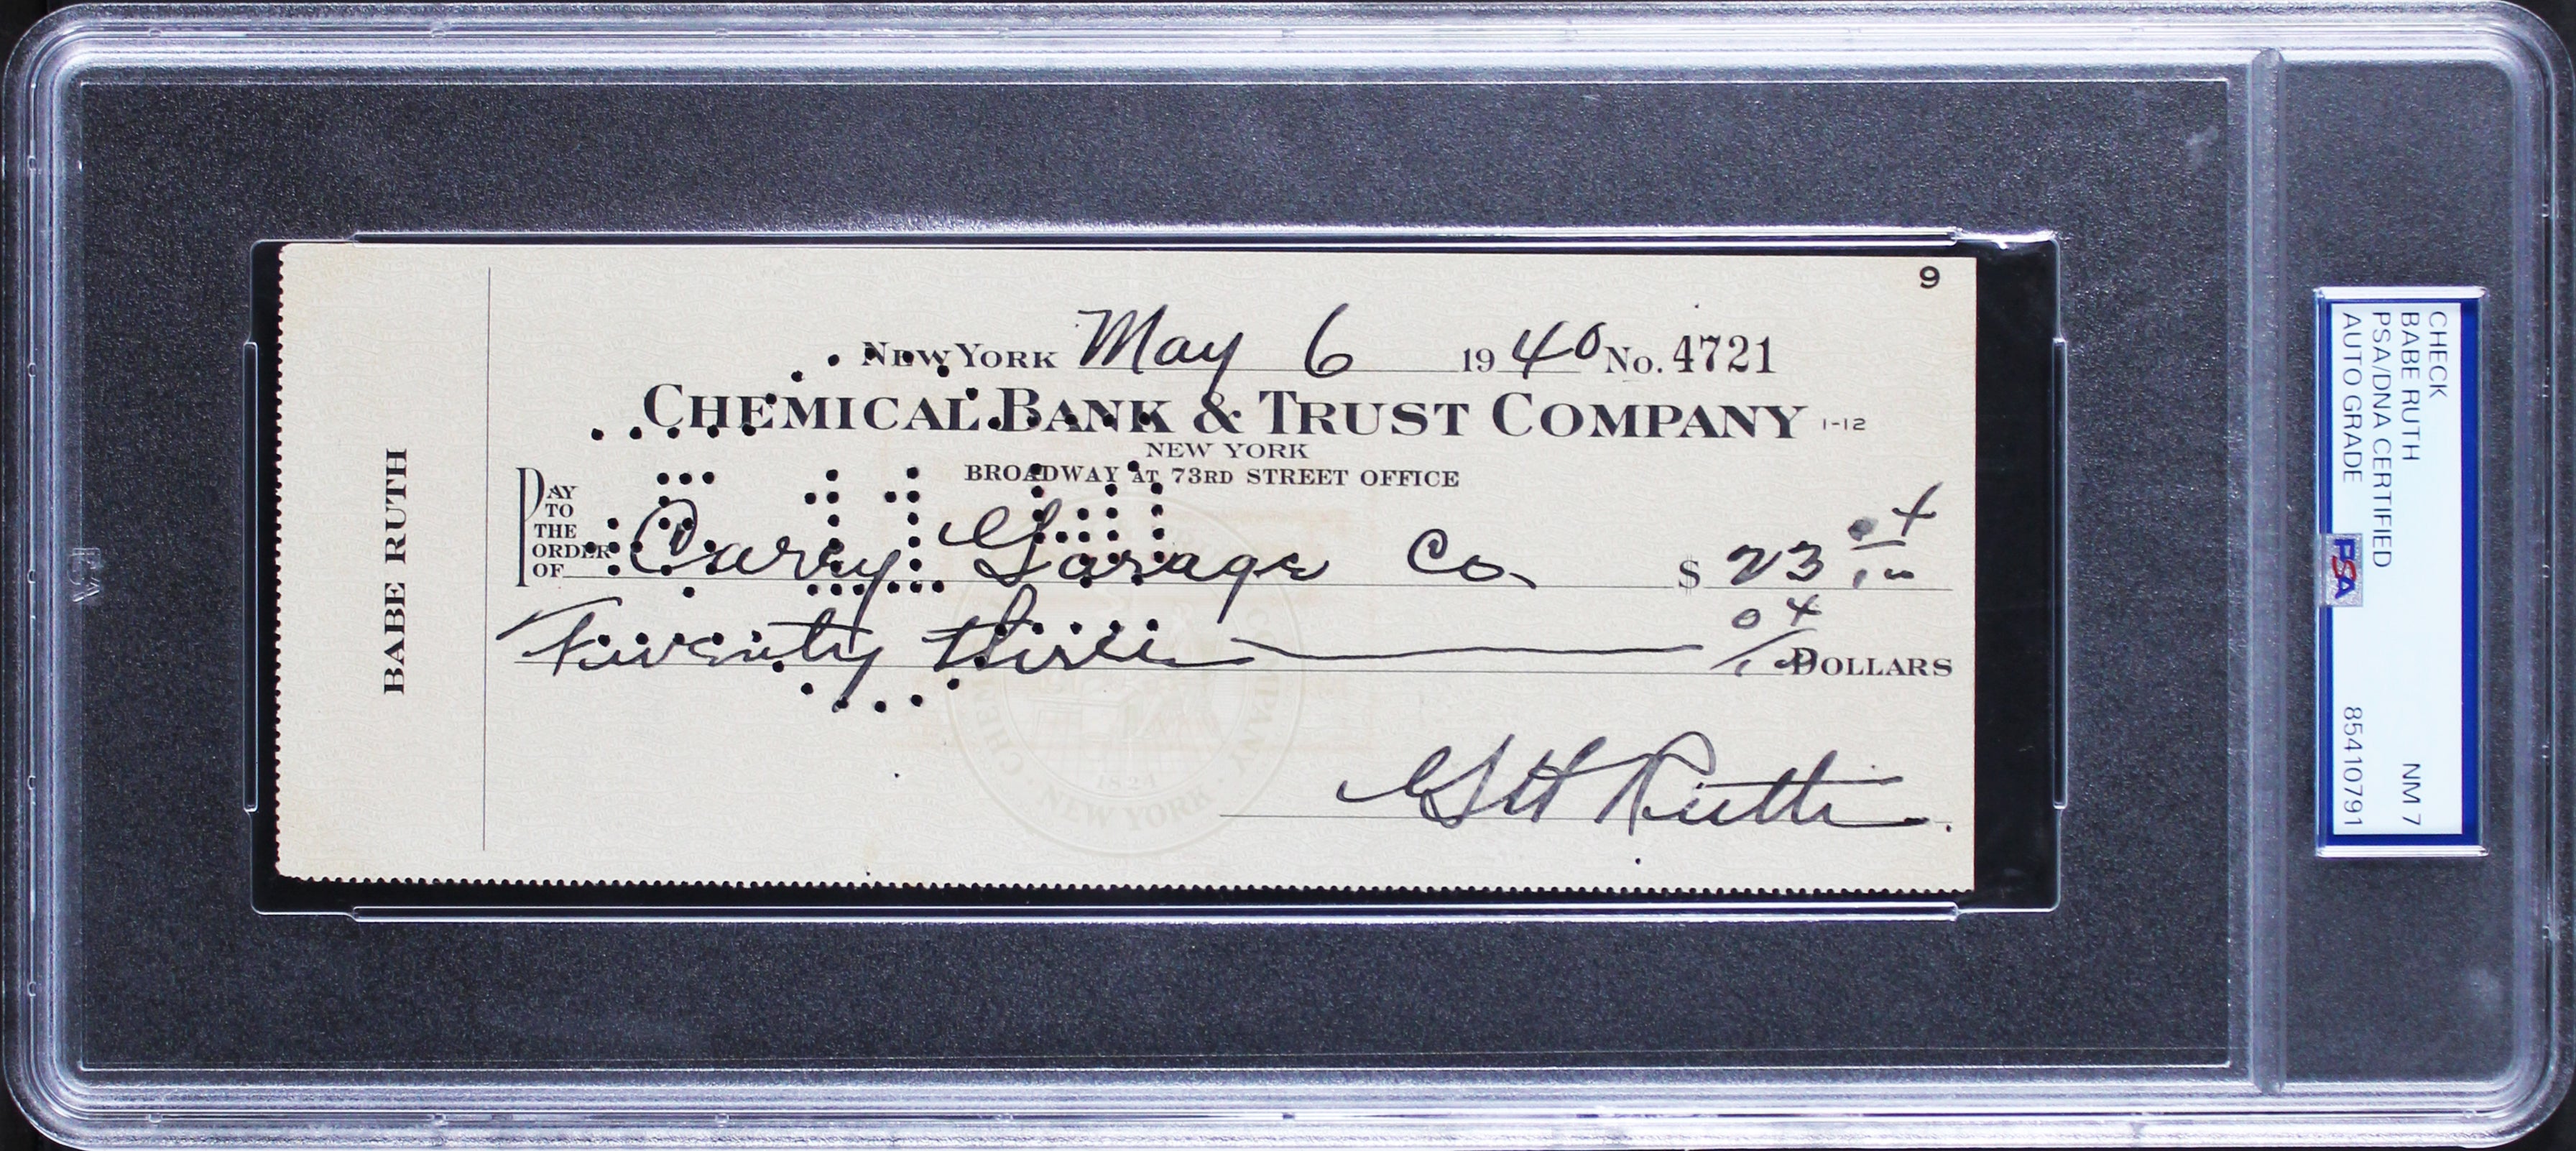 9
NEW YORK May 6 1940 No. 4721
CHEMICAL BANK & TRUST COMPANY 1-12
NEW YORK
BROADWAY AT 73RD STREET OFFICE
PAY TO THE ORDER OF Carey Garage Co. $ 23 04/100
Twenty three 04/100 DOLLARS
G H Ruth
BABE RUTH
CHEMICAL BANK & TRUST COMPANY
1824
NEW YORK
CHECK
BABE RUTH NM 7
PSA/DNA CERTIFIED
AUTO GRADE 85410791
PSA